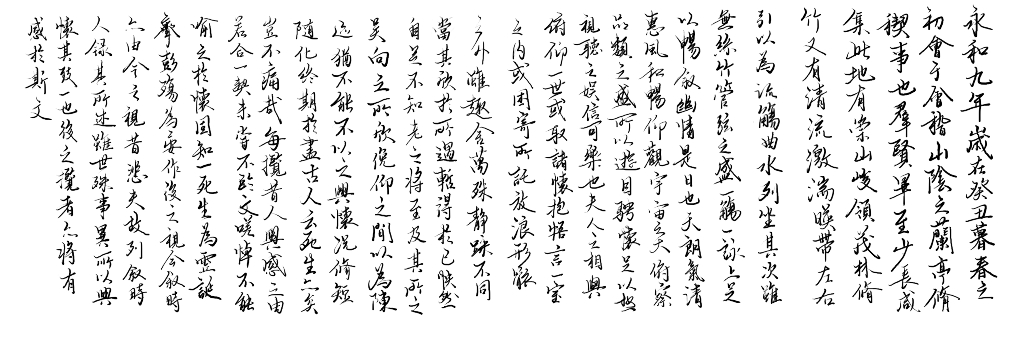 永和九年歲在癸丑暮春之
初會于會稽山陰之蘭亭脩
稧事也羣賢畢至少長咸
集此地有崇山峻領茂林脩
竹又有清流激湍暎帶左右
引以為流觴曲水列坐其次雖
無絲竹管弦之盛一觴一詠亦足
以暢敘幽情是日也天朗氣清
惠風和暢仰觀宇宙之大俯察
品類之盛所以遊目騁懷足以極
視聽之娛信可樂也夫人之相與
俯仰一世或取諸懷抱悟言一室
之內或因寄所託放浪形骸
之外雖趣舍萬殊靜躁不同
當其欣於所遇暫得於己怏然
自足不知老之將至及其所之
矣向之所欣俛仰之間以為陳
迹猶不能不以之興懷況脩短
隨化終期於盡古人云死生亦矣
豈不痛哉每攬昔人興感之由
若合一契未嘗不臨文嗟悼不能
喻之於懷固知一死生為虛誕
齊彭殤為妄作後之視今敘時
亦由今之視昔悲夫故列敘時
人錄其所述雖世殊事異所以興
懷其致一也後之攬者亦將有
感於斯文